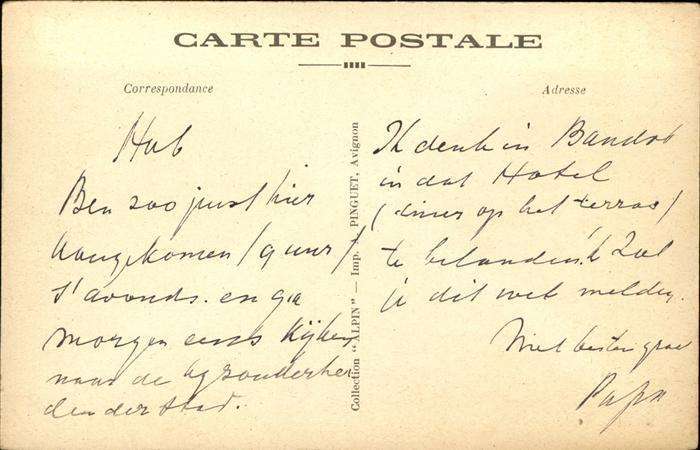 CARTE POSTALE
Correspondance
Adresse
Hub
Ben zoo just hier
aangekomen (9 uur)
s'avonds. en ga
morgen eens kijken
naar de byzonderhe
den der stad.
Collection "ALPIN" — Imp. A. PINGUET, Avignon
Ik denk in Bandol
in dat Hotel
(diner op het terras)
te belanden. Ik zal
je dit wel melden.
Met besten groet
Papa